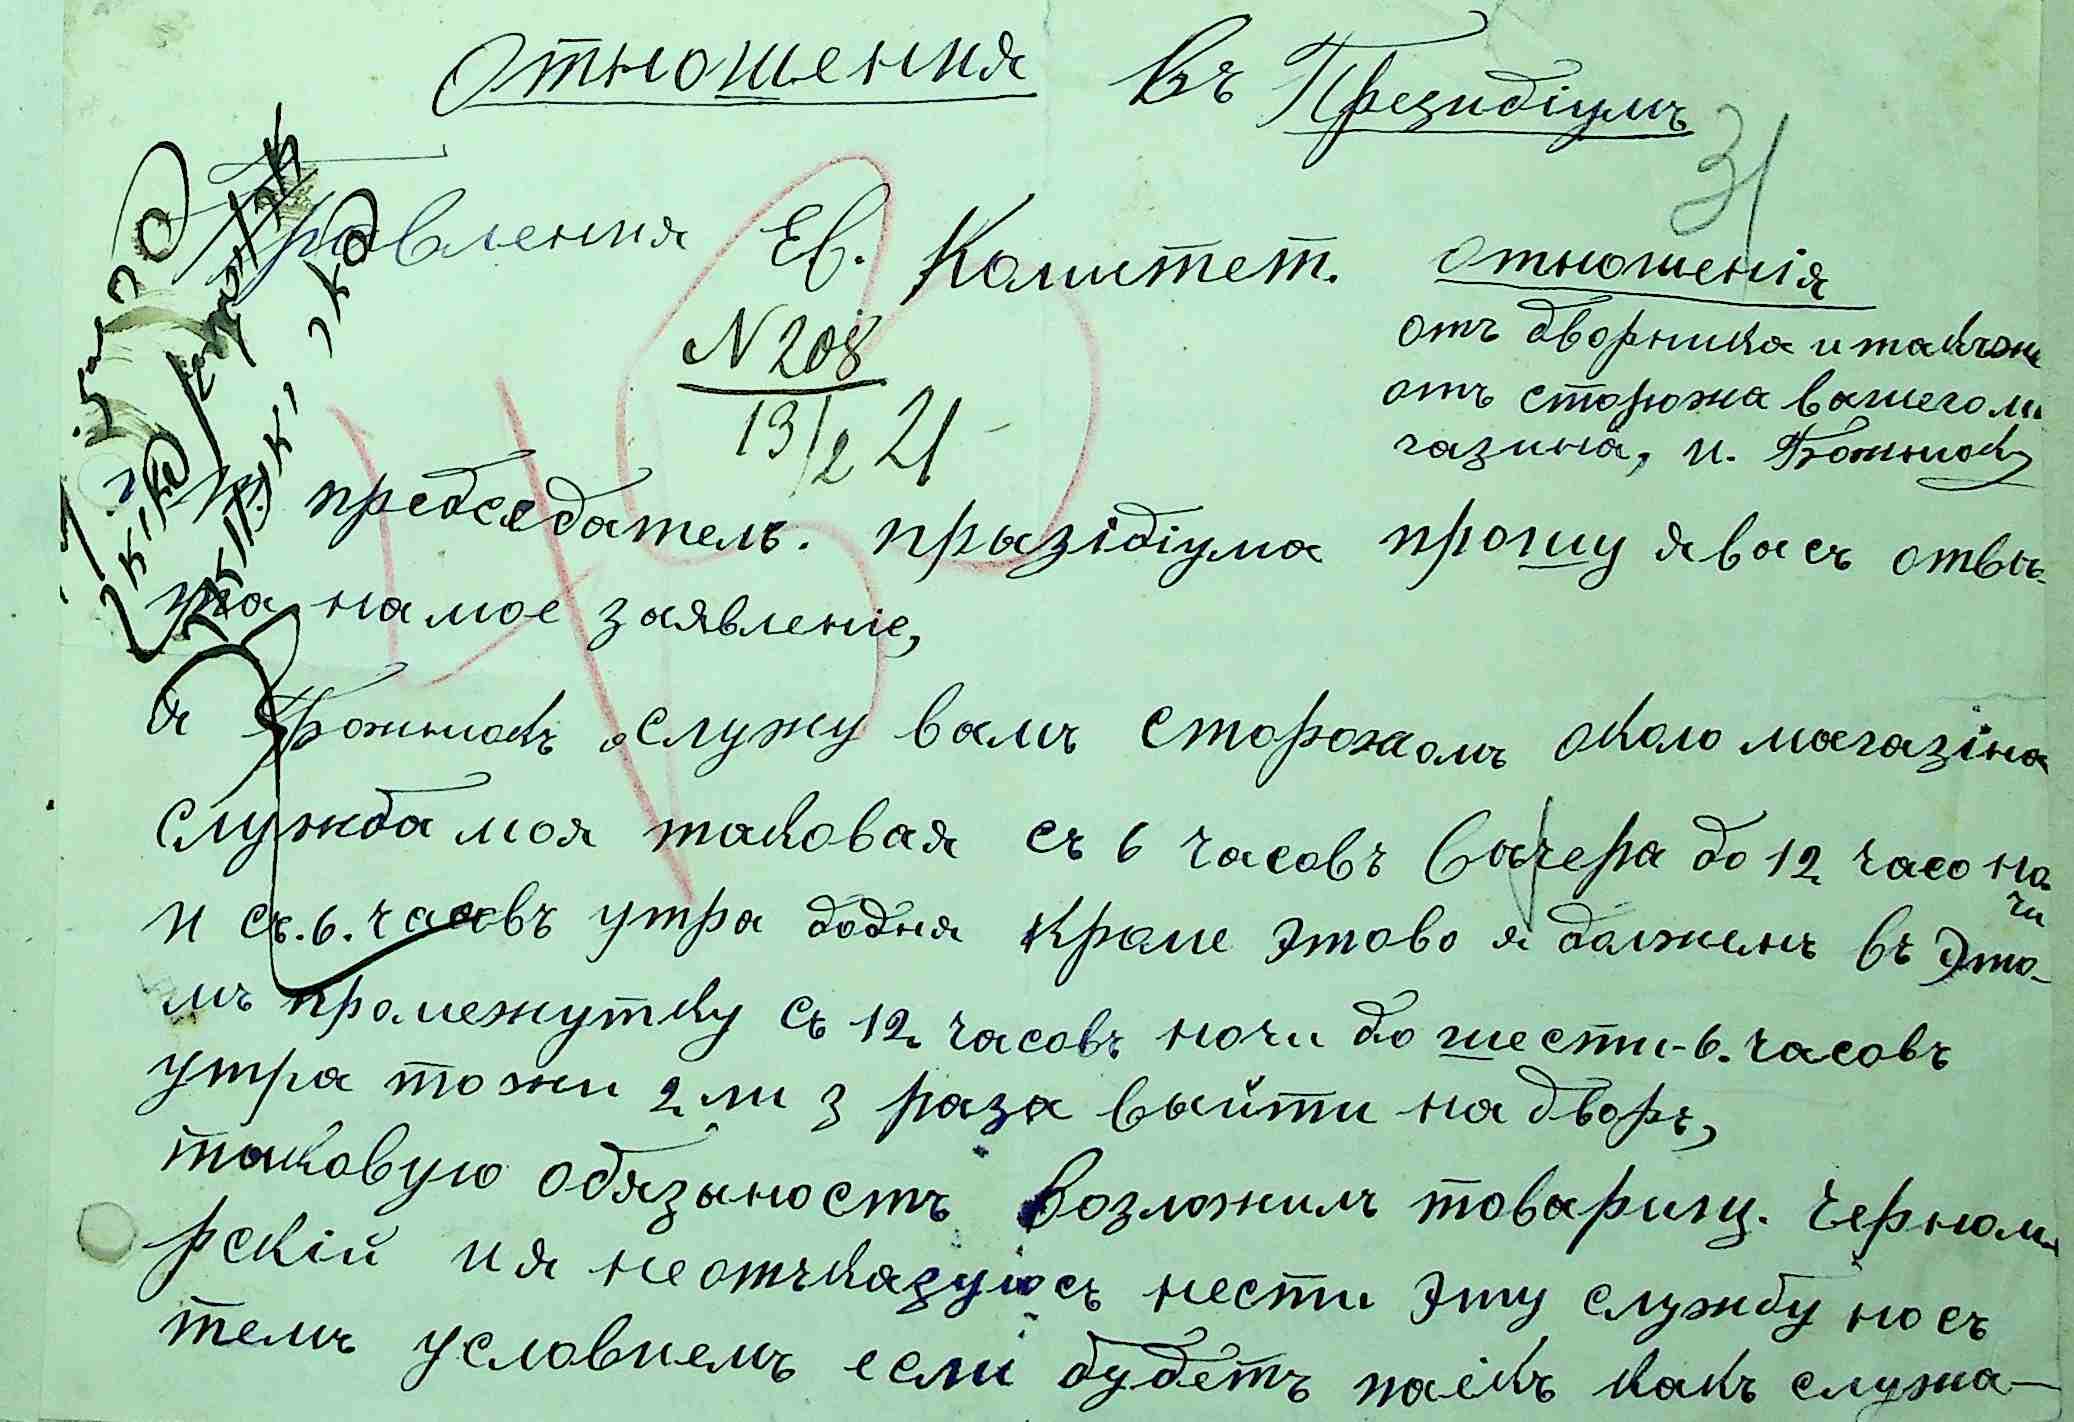 Отношения Въ Президіумъ
31
Правления Ев. Комитет. отношенія
N 208
13/2 21
отъ дворника и такъже
отъ сторожа вашего ма
газина, и. Божнюкъ
председатель. прызідіума прошу я васъ отвы-
та на мое заявление,
я Божнюкъ служу вамъ сторожомъ около магазіна
служба моя таковая съ 6 часовъ вычера до 12 часо но
чи
и съ.6. часовъ утра додня кроме этово я далженъ въ это-
мъ промежутку съ 12 часовъ ночи до шести-6. часовъ
утра тожи 2 ли 3 раза выйти на дворъ,
таковую обязыность возложилъ товарищ. Черном
рскій и я неотъказуюсъ нести эту службу но съ
темъ условиемъ если будетъ паёкъ какъ служа-